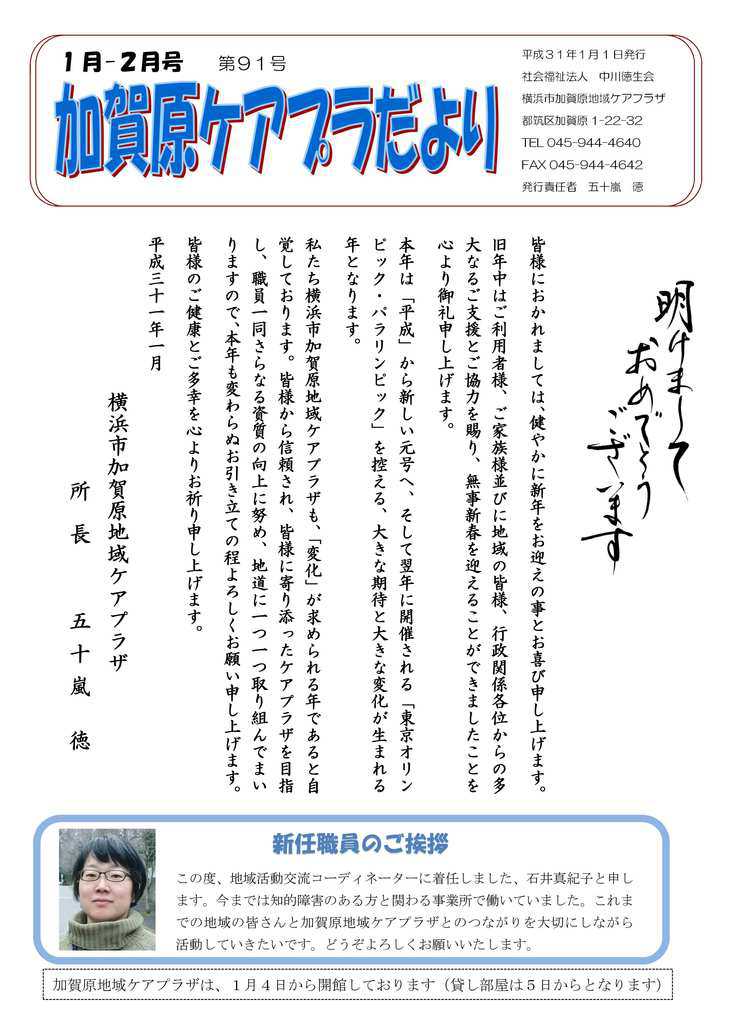 1月-2月号 第91号
加賀原ケアプラだより
平成31年1月1日発行
社会福祉法人 中川徳生会
横浜市加賀原地域ケアプラザ
都筑区加賀原 1-22-32
TEL 045-944-4640
FAX 045-944-4642
発行責任者 五十嵐 徳
明けまして
おめでとう
ございます
皆様におかれましては、健やかに新年をお迎えの事とお喜び申し上げます。
旧年中はご利用者様、ご家族様並びに地域の皆様、行政関係各位からの多
大なるご支援とご協力を賜り、無事新春を迎えることができましたことを
心より御礼申し上げます。
本年は「平成」から新しい元号へ、そして翌年に開催される「東京オリン
ピック・パラリンピック」を控える、大きな期待と大きな変化が生まれる
年となります。
私たち横浜市加賀原地域ケアプラザも、「変化」が求められる年であると自
覚しております。皆様から信頼され、皆様に寄り添ったケアプラザを目指
し、職員一同さらなる資質の向上に努め、地道に一つ一つ取り組んでまい
りますので、本年も変わらぬお引き立ての程よろしくお願い申し上げます。
皆様のご健康とご多幸を心よりお祈り申し上げます。
平成三十一年一月
横浜市加賀原地域ケアプラザ
所長 五十嵐 徳
新任職員のご挨拶
この度、地域活動交流コーディネーターに着任しました、石井真紀子と申し
ます。今までは知的障害のある方と関わる事業所で働いていました。これま
での地域の皆さんと加賀原地域ケアプラザとのつながりを大切にしながら
活動していきたいです。どうぞよろしくお願いいたします。
加賀原地域ケアプラザは、1月4日から開館しております(貸し部屋は5日からとなります)